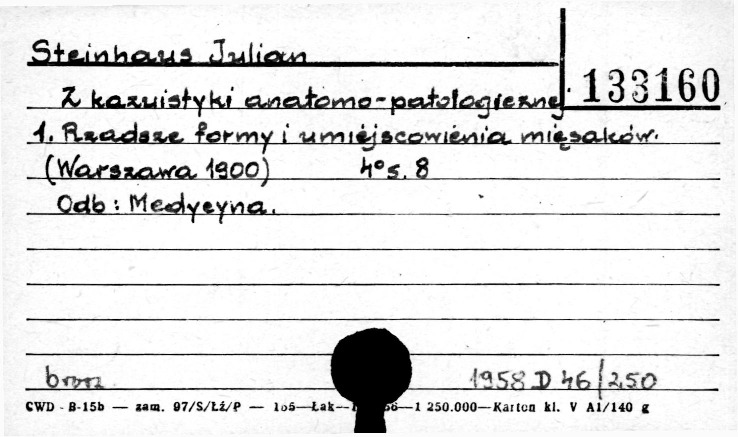 Steinhaus Julian
133160
Z kazuistyki anatomo-patologicznej.
1. Rzadsze formy i umiejscowienia mięsaków.
(Warszawa 1900) 4° s. 8
Odb: Medycyna.
brosz.
1958 D 46/250
CWD - B-15b — zam. 97/S/Łż/P — Łak— —1 250.000—Karton kl. V A1/140 g